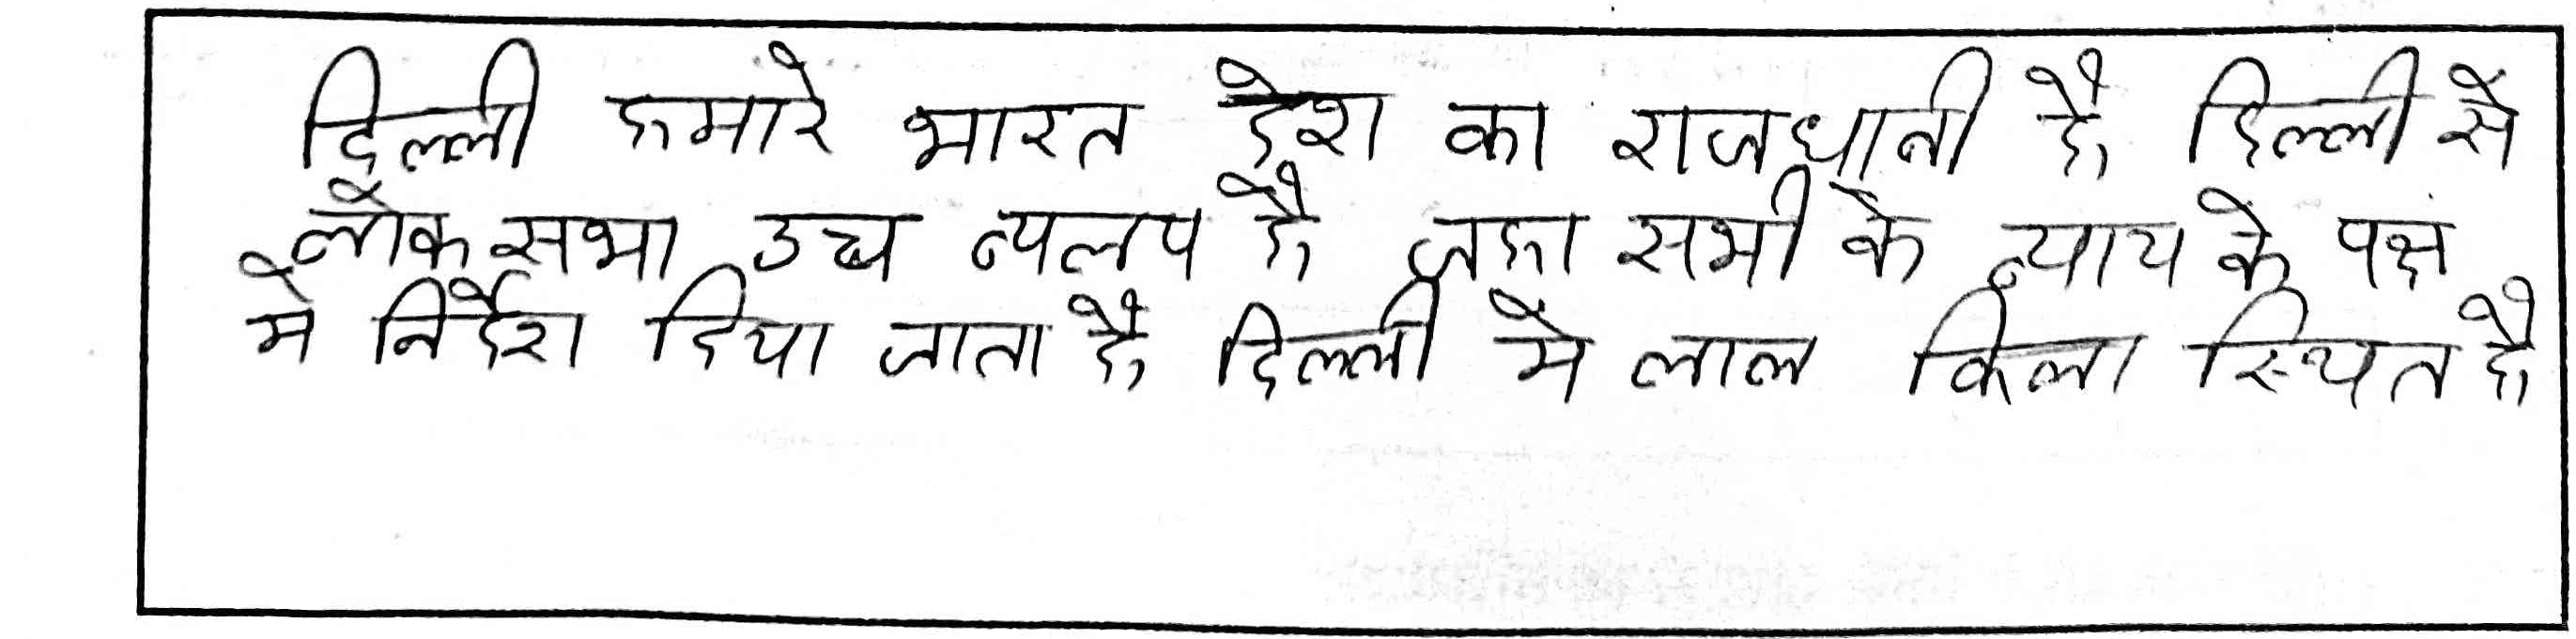 दिल्ली हमारे भारत देश का राजधानी है दिल्ली से
लोक सभा उच्च न्यलय है जहा सभी के न्याय के पक्ष
मे निर्देश दिया जाता है दिल्ली मे लाल किला स्थित है